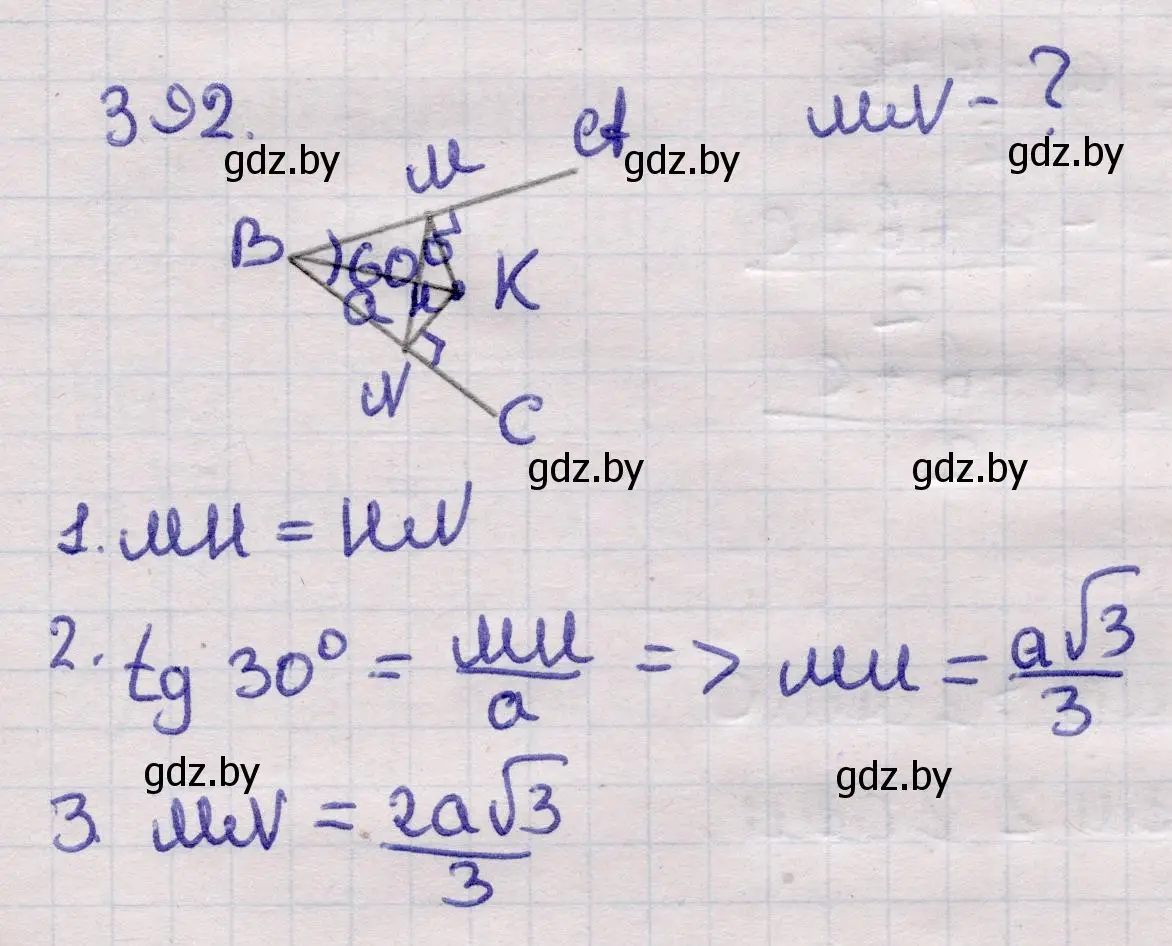 392.
MN - ?
gdz.by
gdz.by
gdz.by
M
A
B
60°
a
H
K
N
C
gdz.by
gdz.by
1. MH = HN
2. tg 30° = MH/a => MH = a√3/3
gdz.by
gdz.by
3. MN = 2a√3/3